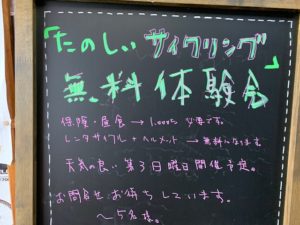 「たのしいサイクリング
無料体験会」
保険・昼食 → 1,000円 必要です。
レンタサイクル + ヘルメット → 無料になります
天気の良い 第3日曜日開催予定。
お問合せ お待ちしています。
〜5名様。